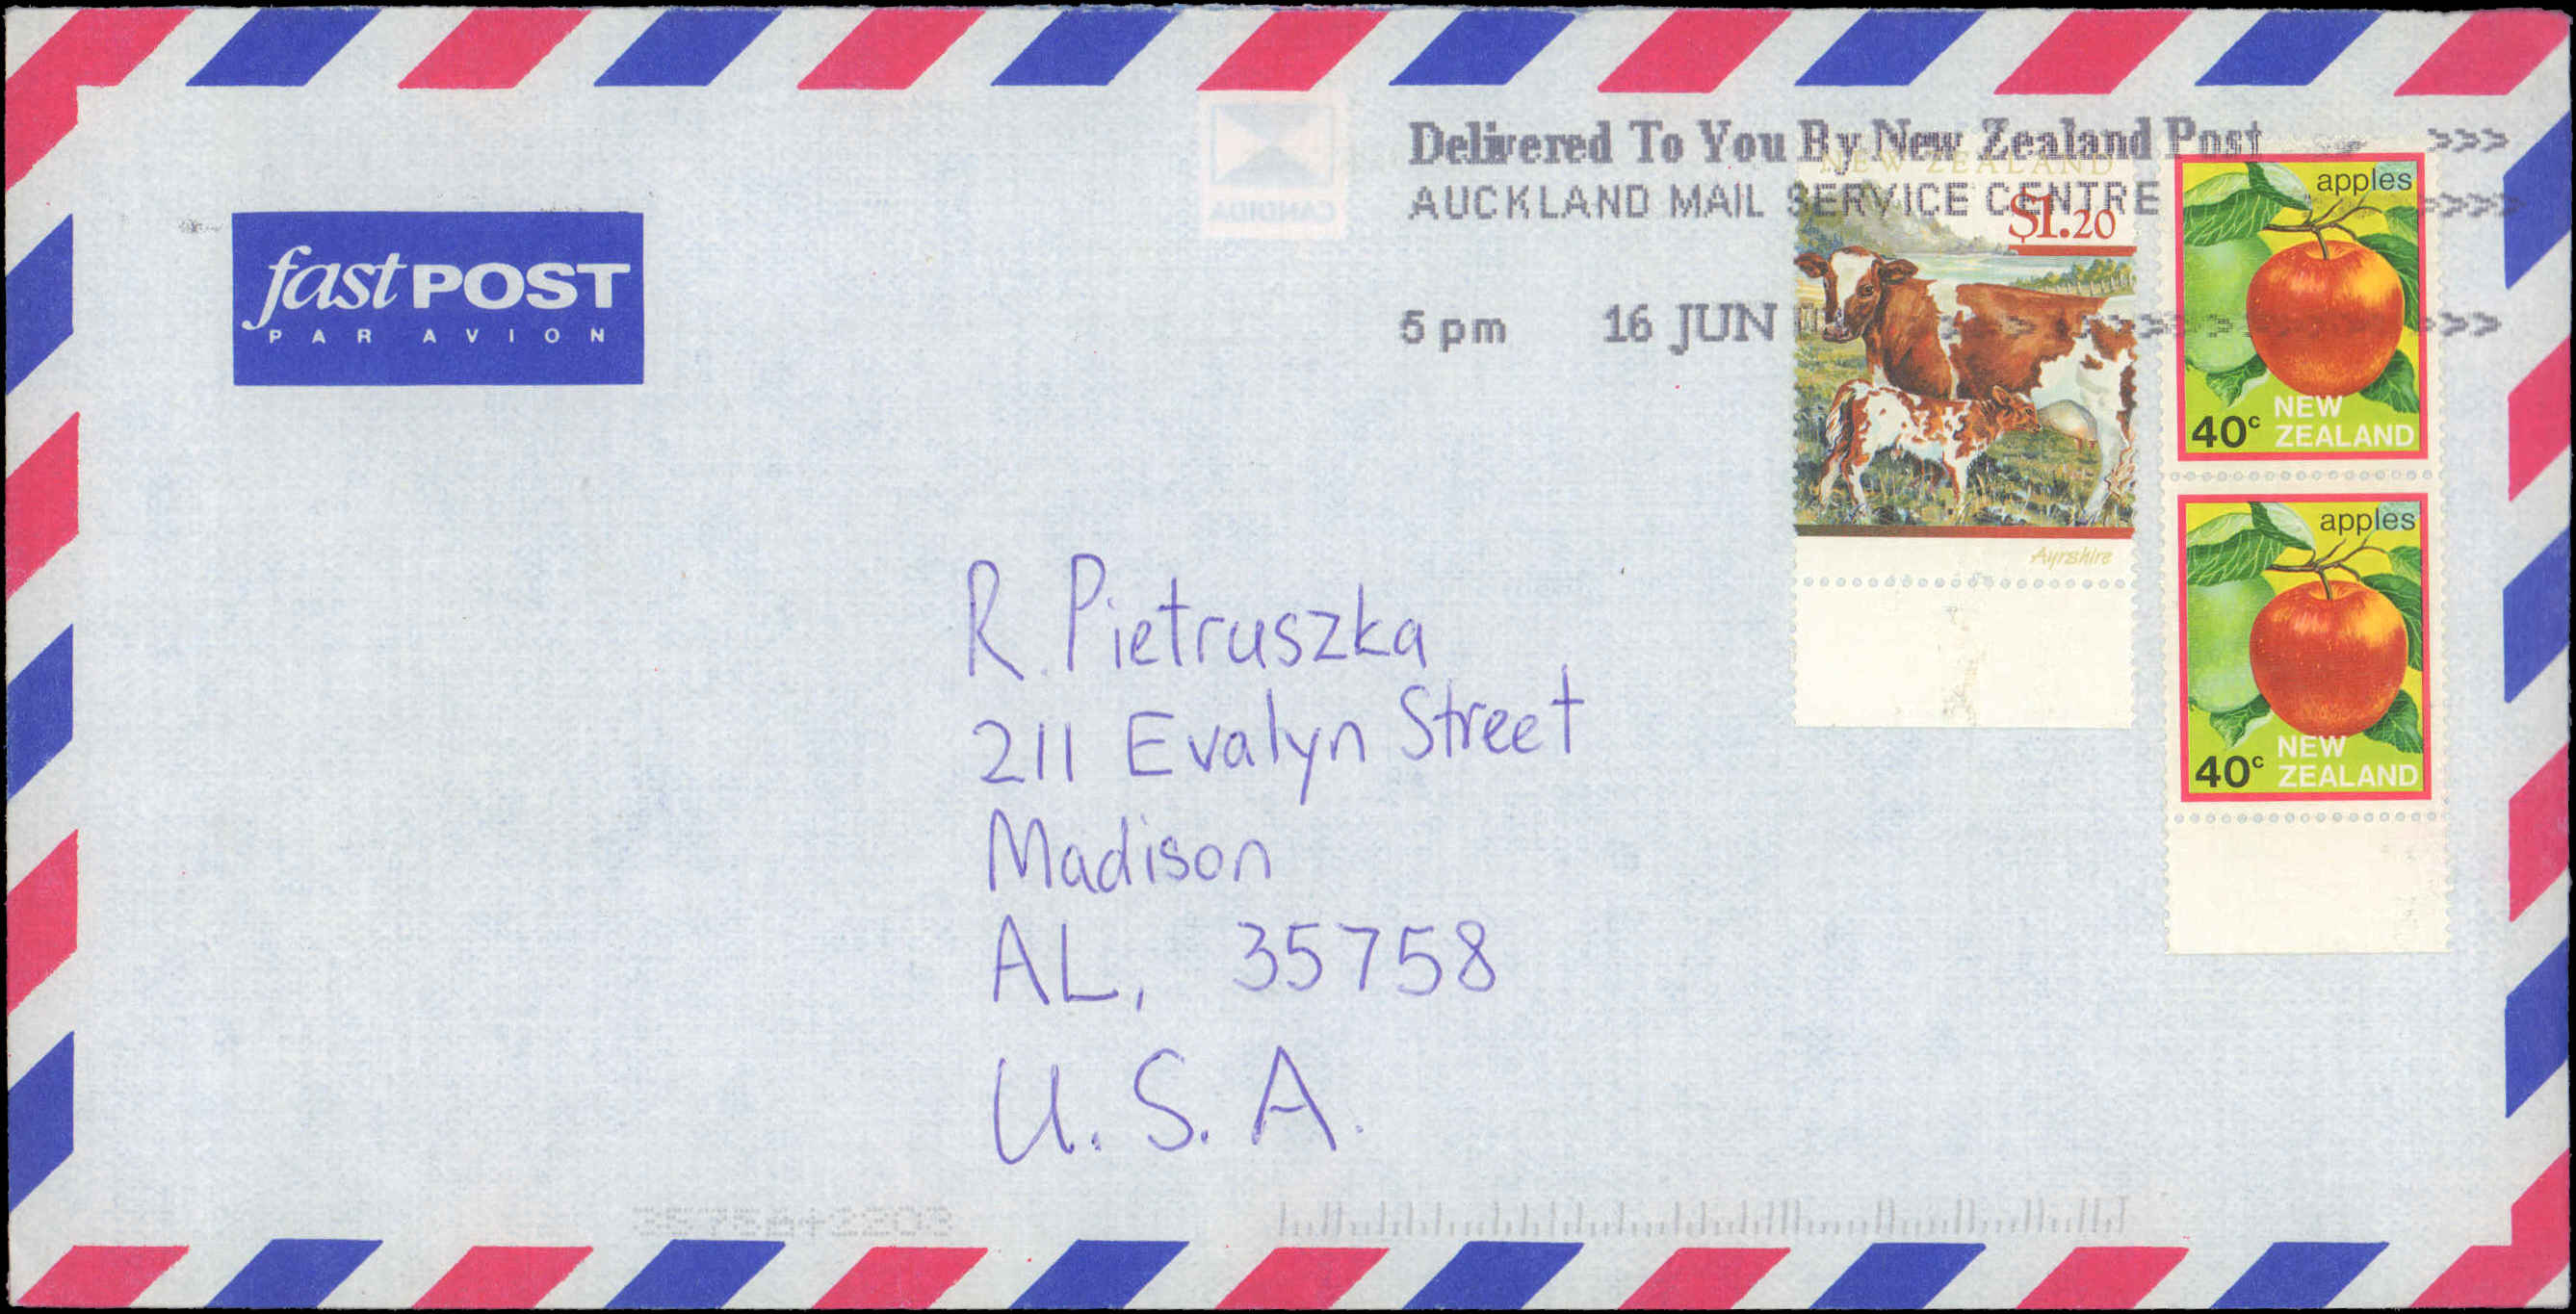 Delivered To You By New Zealand Post >>>
AUCKLAND MAIL SERVICE CENTRE >>>>
5 pm 16 JUN
fast POST
PAR AVION
CANDIDA
NEW ZEALAND
$1.20
Ayrshire
apples
40c NEW
ZEALAND
apples
40c NEW
ZEALAND
R. Pietruszka
211 Evalyn Street
Madison
AL, 35758
U.S.A.